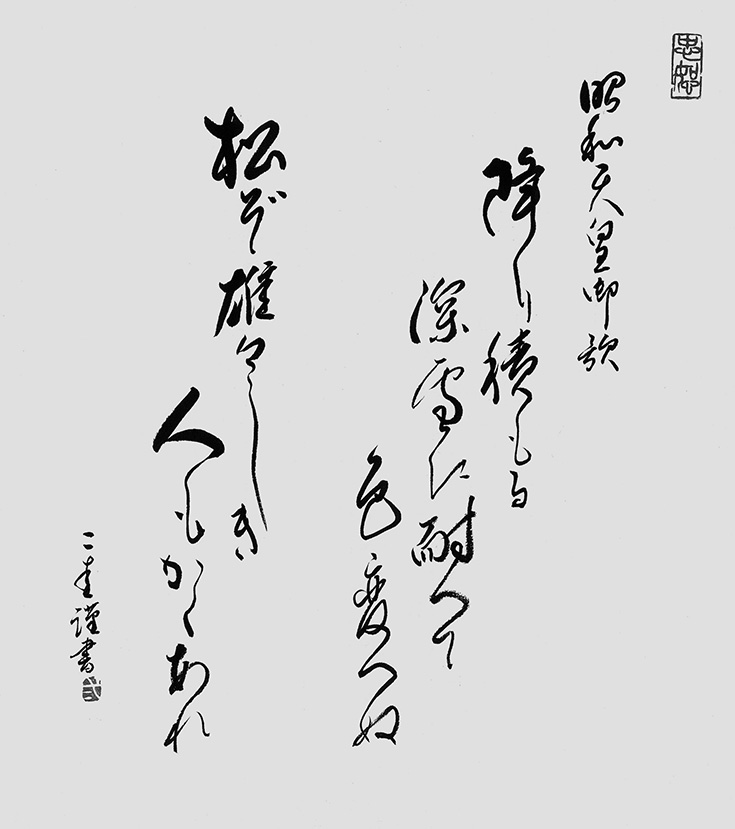 忠恕
昭和天皇御歌
降り積もる
深雪に耐へて
色変へぬ
松ぞ雄々しき
人もかくあれ
謹書